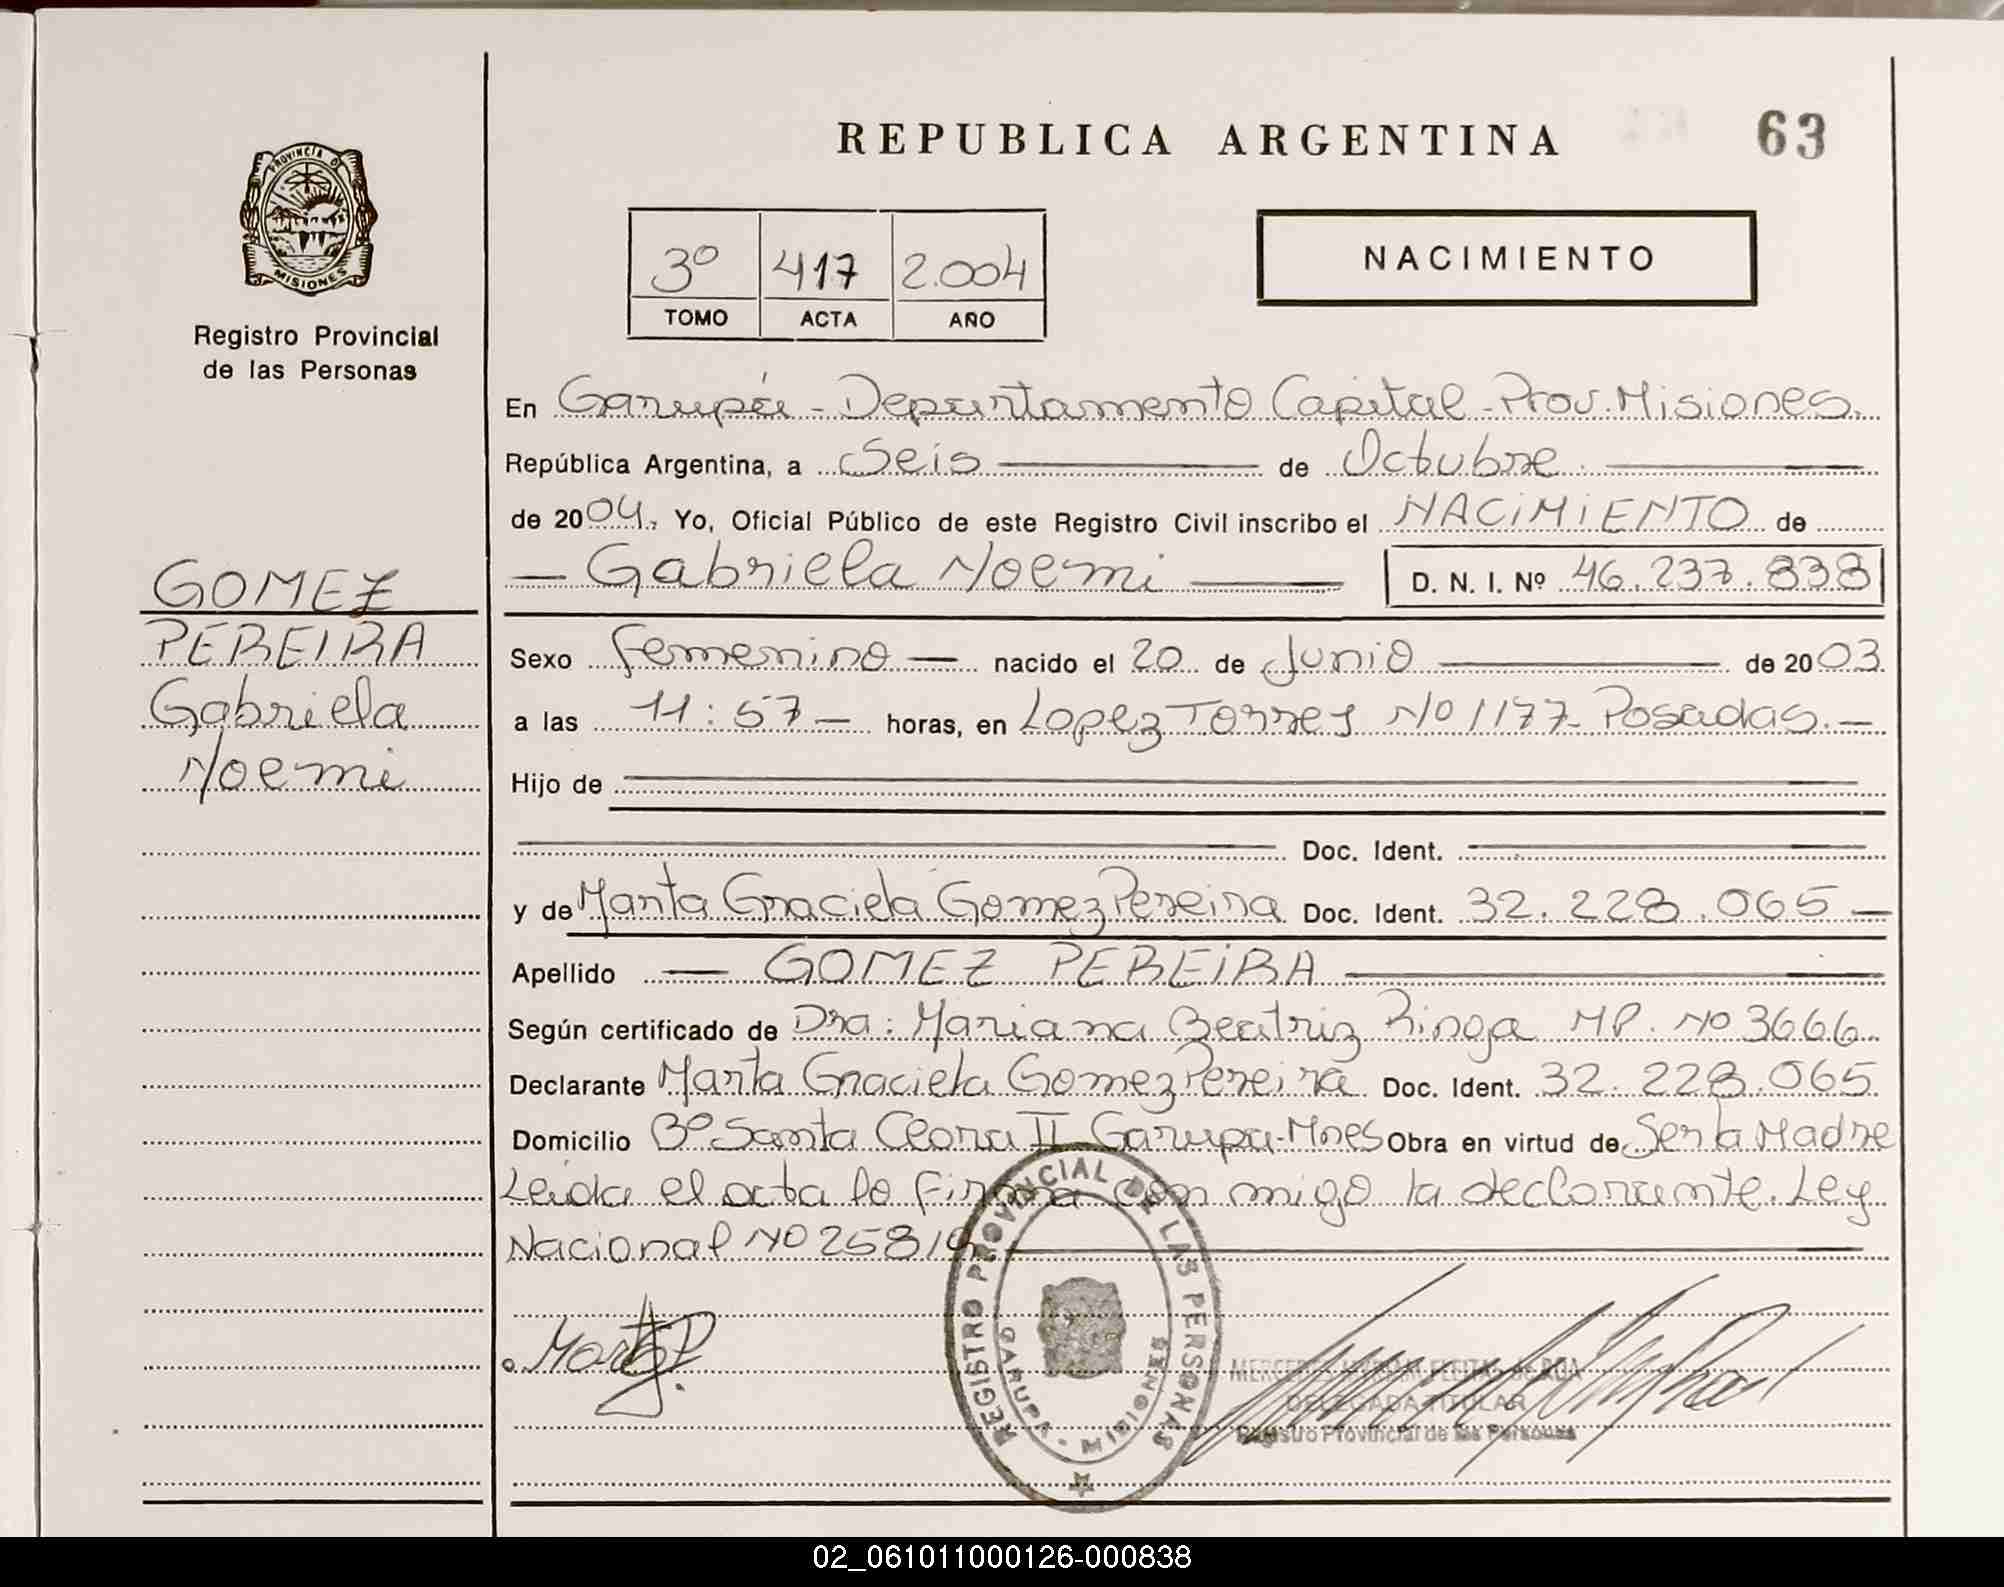 REPUBLICA ARGENTINA
63
PROVINCIA DE
MISIONES
Registro Provincial
de las Personas
3º 417 2.004
TOMO ACTA AÑO
NACIMIENTO
En Garupá - Departamento Capital - Prov. Misiones.
República Argentina, a Seis de Octubre
de 2004. Yo, Oficial Público de este Registro Civil inscribo el NACIMIENTO de
Gabriela Noemi D. N. I. Nº 46.237.838
GOMEZ
PEREIRA
Gabriela
Noemi
Sexo femenino nacido el 20 de Junio de 2003
a las 11:57 horas, en Lopez Torres No 1177 - Posadas.
Hijo de
Doc. Ident.
y de Marta Graciela Gomez Pereira Doc. Ident. 32.228.065
Apellido GOMEZ PEREIRA
Según certificado de Dra: Mariana Beatriz Ringa MP. No 3666
Declarante Marta Graciela Gomez Pereira Doc. Ident. 32.228.065
Domicilio Bº Santa Clara II Garupa - Mnes Obra en virtud de Ser la Madre
Leida el acta lo firma con migo la declarante. Ley
Nacional No 25819
REGISTRO PROVINCIAL DE LAS PERSONAS
GARUPA - MISIONES
FLEITAS de ROA
DELEGADA TITULAR
Registro Provincial de las Personas
02_061011000126-000838